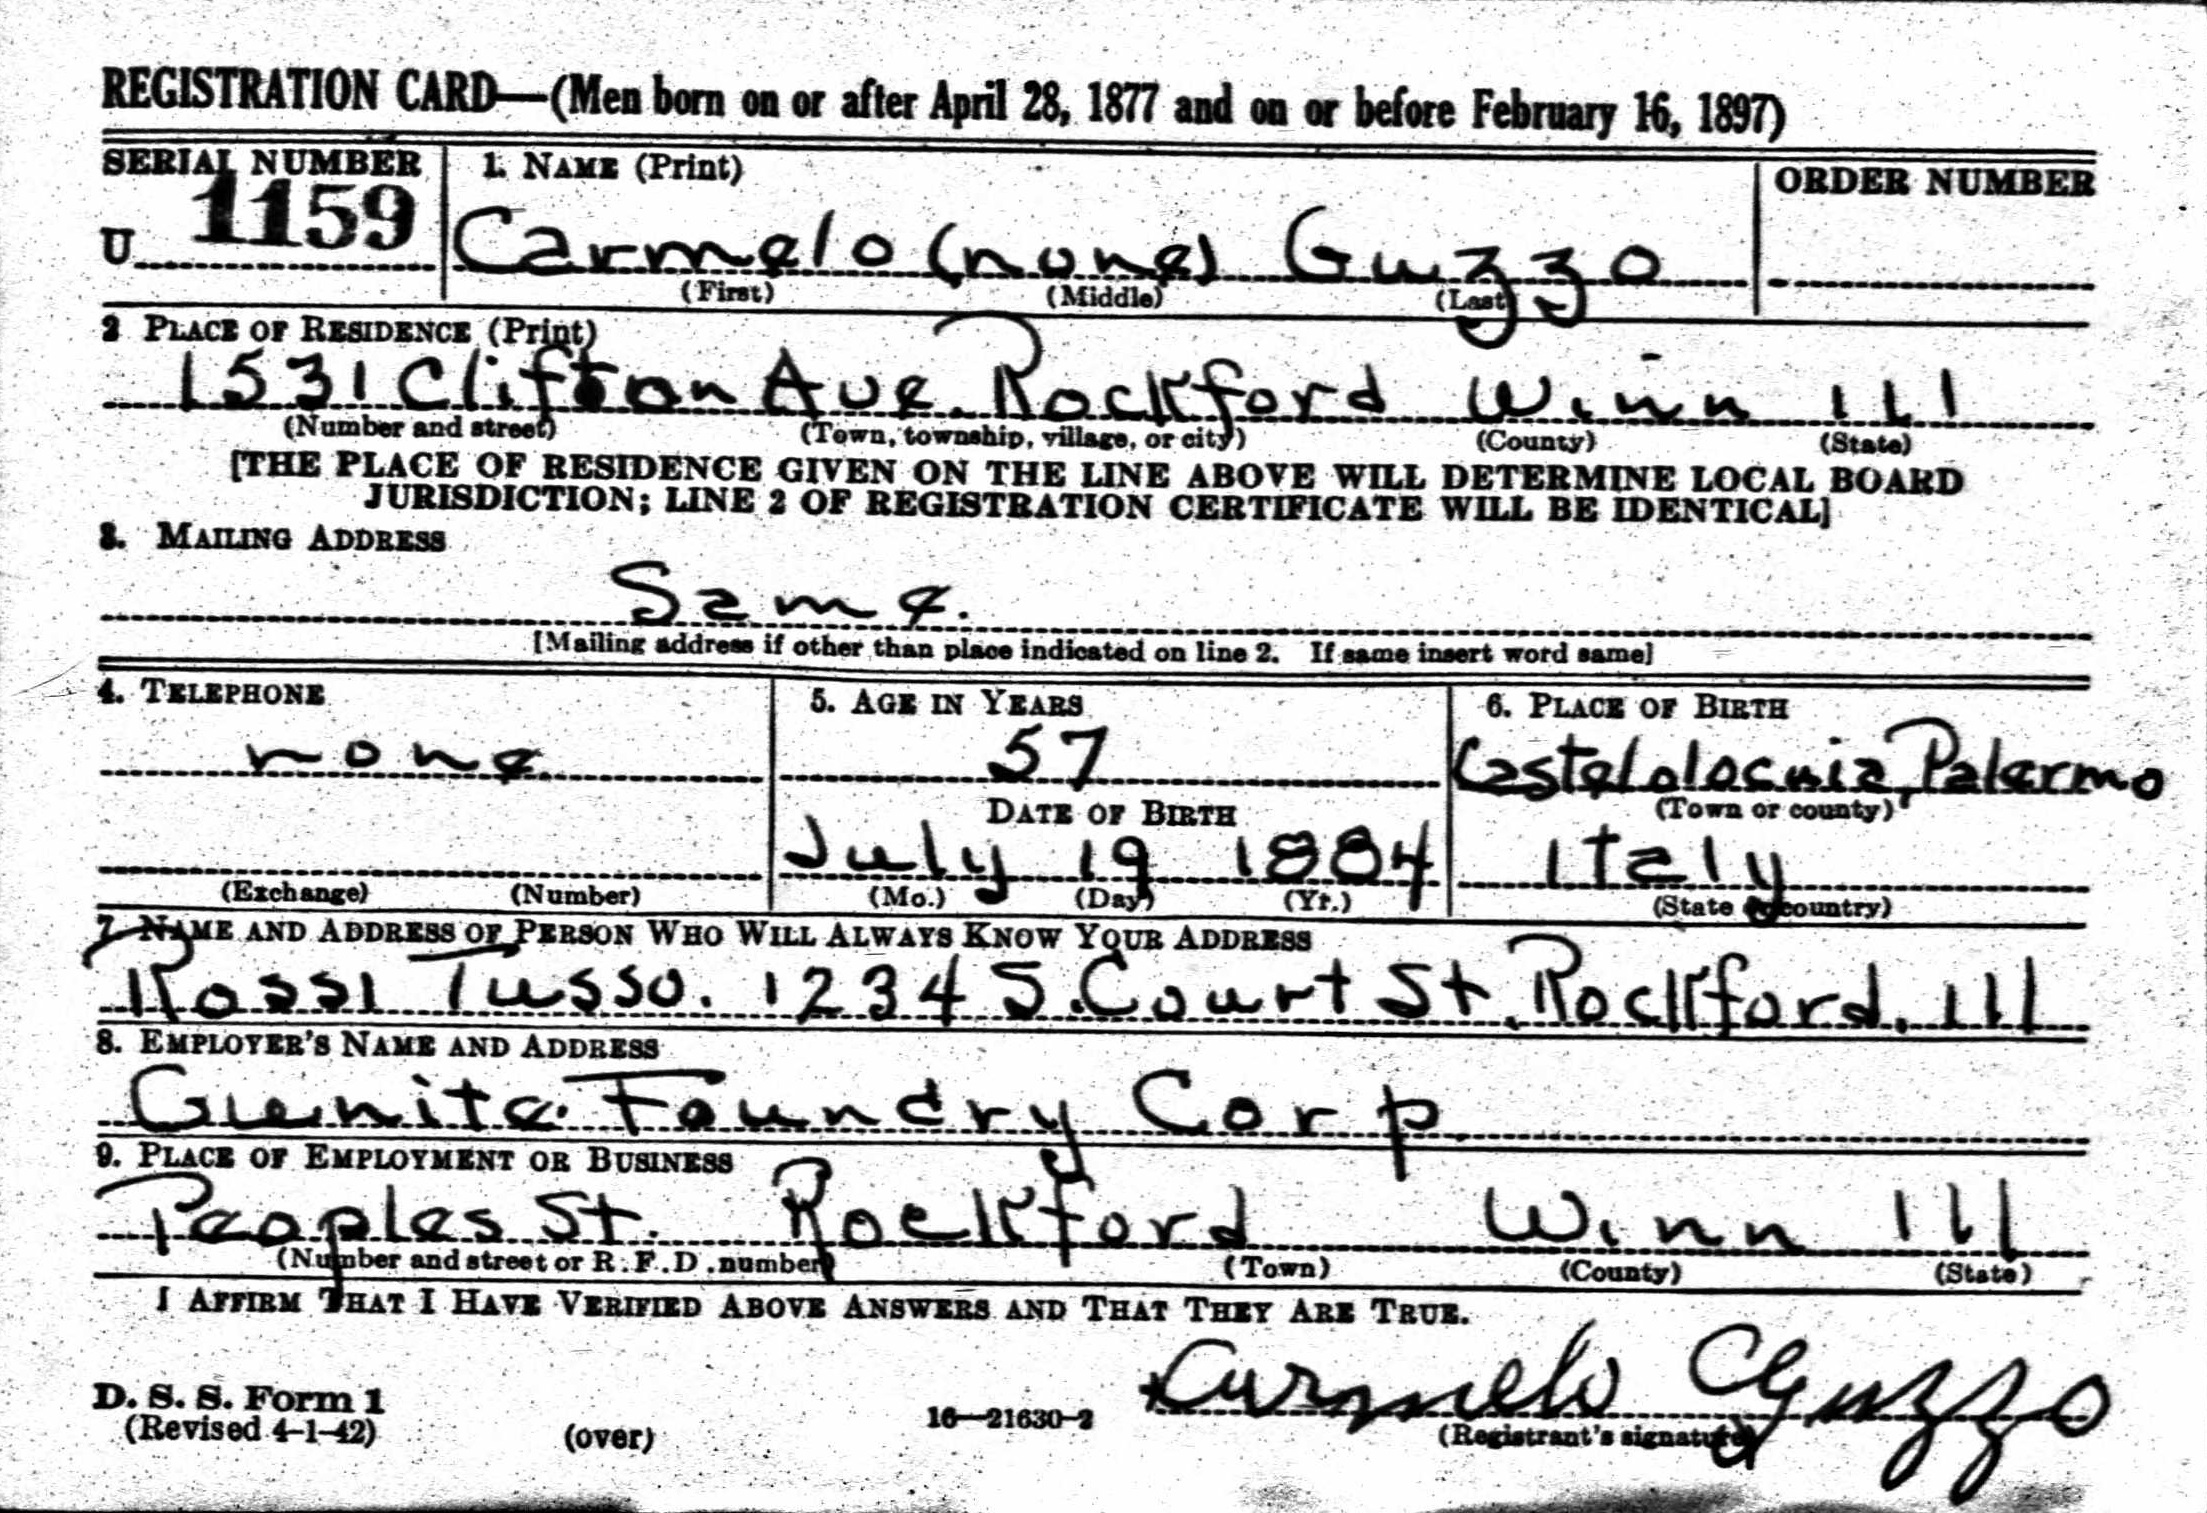 REGISTRATION CARD—(Men born on or after April 28, 1877 and on or before February 16, 1897)
SERIAL NUMBER 1. NAME (Print) ORDER NUMBER
U 1159 Carmelo (none) Guzzo
(First) (Middle) (Last)
2 PLACE OF RESIDENCE (Print)
1531 Clifton Ave. Rockford Winn Ill
(Number and street) (Town, township, village, or city) (County) (State)
[THE PLACE OF RESIDENCE GIVEN ON THE LINE ABOVE WILL DETERMINE LOCAL BOARD
JURISDICTION; LINE 2 OF REGISTRATION CERTIFICATE WILL BE IDENTICAL]
3. MAILING ADDRESS
Same.
[Mailing address if other than place indicated on line 2. If same insert word same]
4. TELEPHONE 5. AGE IN YEARS 6. PLACE OF BIRTH
none 57 Palermo
DATE OF BIRTH (Town or county)
July 19 1884 Italy
(Exchange) (Number) (Mo.) (Day) (Yr.) (State or country)
7. NAME AND ADDRESS OF PERSON WHO WILL ALWAYS KNOW YOUR ADDRESS
Rossi Tusso. 1234 S. Court St. Rockford, Ill
8. EMPLOYER'S NAME AND ADDRESS
Foundry Corp
9. PLACE OF EMPLOYMENT OR BUSINESS
Peoples St. Rockford Winn Ill
(Number and street or R.F.D. number) (Town) (County) (State)
I AFFIRM THAT I HAVE VERIFIED ABOVE ANSWERS AND THAT THEY ARE TRUE.
D. S. S. Form 1
(Revised 4-1-42) (over) 16—21630-2
Carmelo Guzzo
(Registrant's signature)